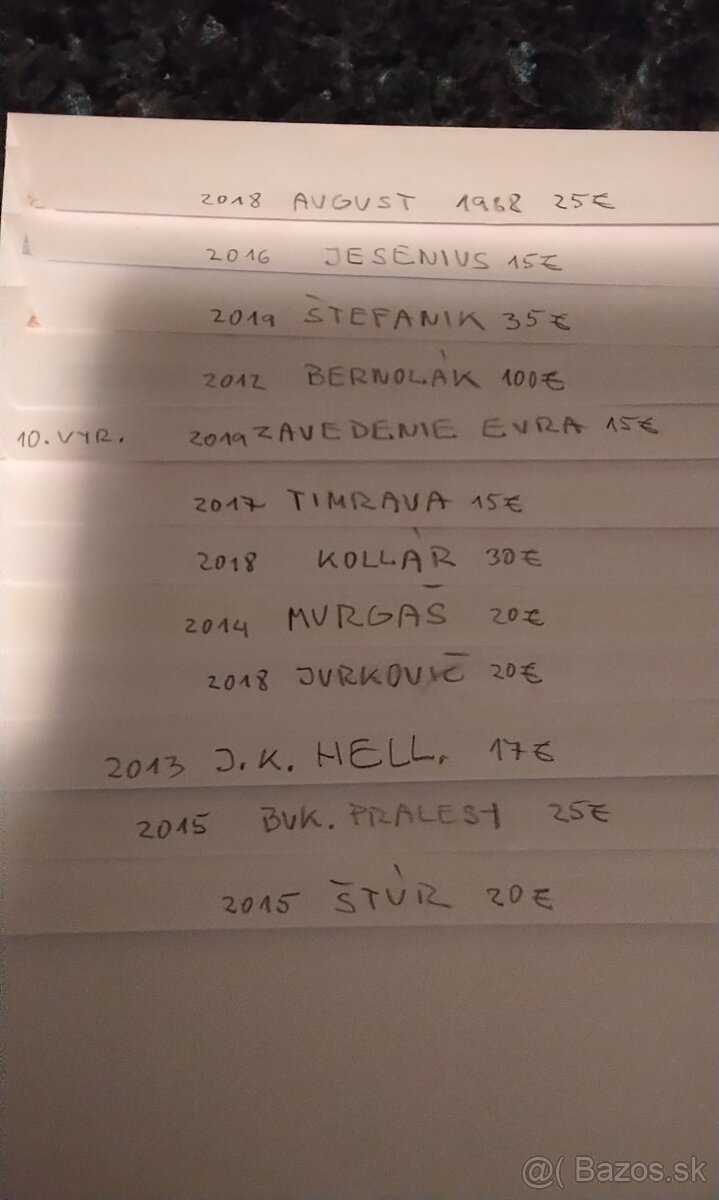 2018 AUGUST 1968 25€
2016 JESENIUS 15€
2019 ŠTEFANIK 35€
2012 BERNOLÁK 100€
10. VYR. 2019 ZAVEDENIE EURA 15€
2017 TIMRAVA 15€
2018 KOLLÁR 30€
2014 MURGAŠ 20€
2018 JURKOVIČ 20€
2013 J.K. HELL. 17€
2015 BUK. PRALESY 25€
2015 ŠTÚR 20€
@( Bazos.sk